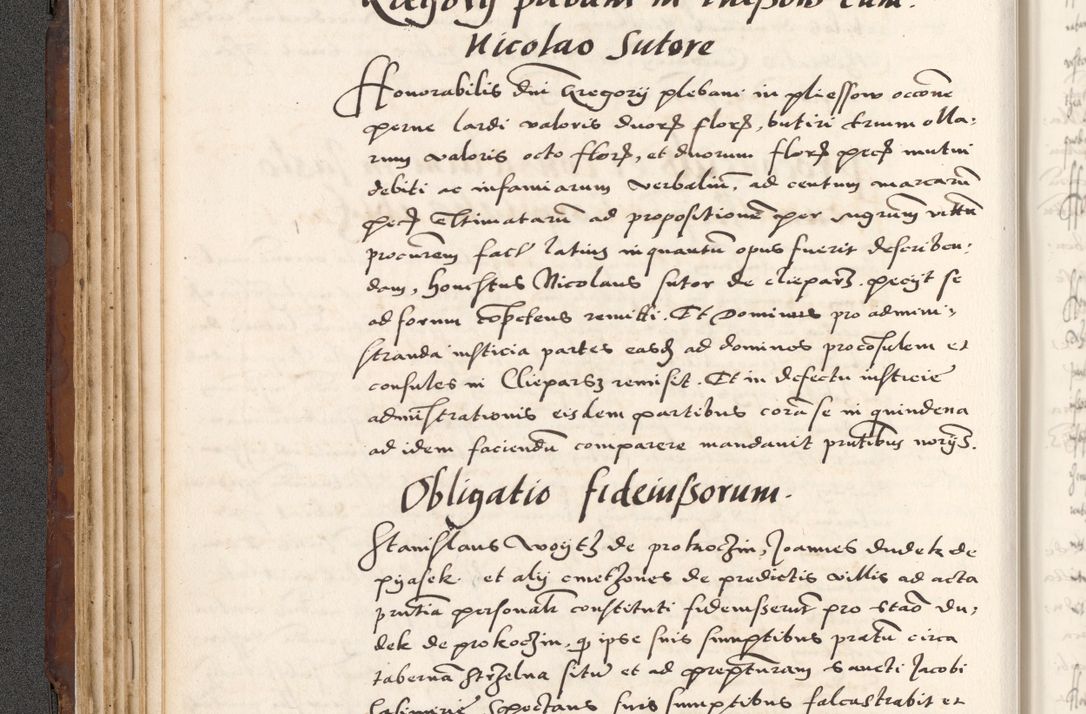 Gregorij plebani in
Nicolao Sutore
Honorabilis dni Gregorij plebani in pliessow occone
perne lardi valoris duorꝝ florꝝ, butiri trium olla-
rum valoris octo florꝝ, et duorum florꝝ pecꝝ mutui
debiti ac infamiarum verbaliũ, ad centum marcarũ
pecꝝ estimatarũ ad propositionẽ per
procurem fact latius inquantũ opus fuerit describen-
dam, honestus Nicolaus sutor de clieparz petijt se
ad forum remitti. Et Dominus pro admini-
stranda iusticia partes easd ad dominos procõsulem et
consules in Clieparz remisit. Et in defectu iusticie
administrationis eisdem partibus corã se in quindena
ad idem faciendũ comparere mandavit pntibus
Obligatio fideiussorum.
Stanislaus Woytz de prokoczin, Joannes dudek de
pyasek et alij cmethones de predictis villis ad acta
pntia personalr constituti fideiusserũt pro Stão du-
dek de prokoczin, ꝙ ipse suis sumptibus pratũ circa
tabernã Strzelna situ et ad prepturam Sancti Jacobi
Casimirie spectans suis sumptibus falcastrabit et